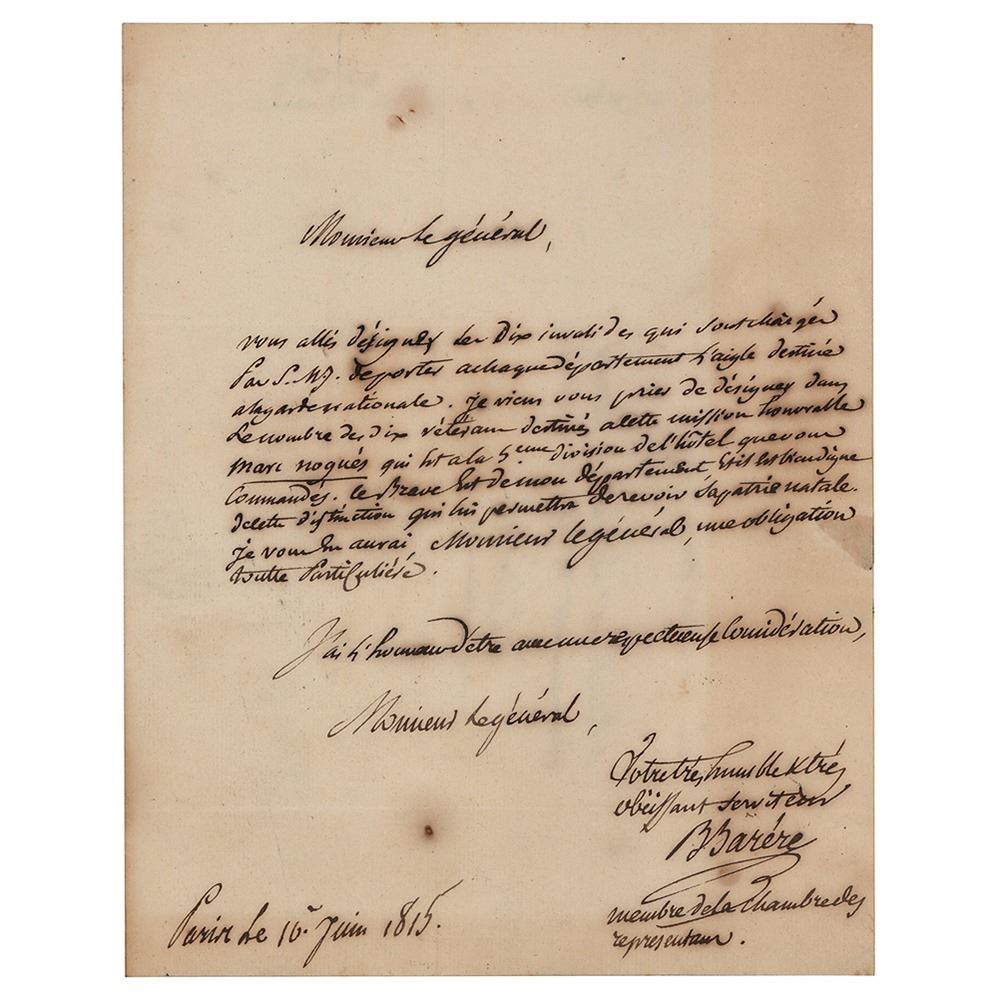 Monsieur le général,
vous allés désigner les Dix invalides qui sont chargés
Par S. M. de porter a chaque département l'aigle destiné
a la garde nationale. je viens vous prier de désigner dans
le nombre des dix vétérans destinés a cette mission honorable
marc noguès qui Est a la 5eme division de l'hôtel que vous
Commandés. ce Brave Est de mon département Et il Est bien digne
de cette distinction qui lui permettra de revoir sa patrie natale.
je vous En aurai, Monsieur le général, une obligation
toutte Particulière.
J'ai l'honneur d'être avec une respectueuse Considération,
Monsieur le général,
Votre très humble & très
obéissant serviteur
B Barére
membre de la Chambre des
representans.
Paris le 10. Juin 1815.